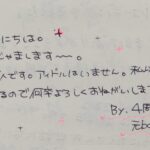 にちは。
じゃまします〜〜。
人です。アイドルはいません。私
るので何卒よろしくおねがいしま
By. 4周
元bo